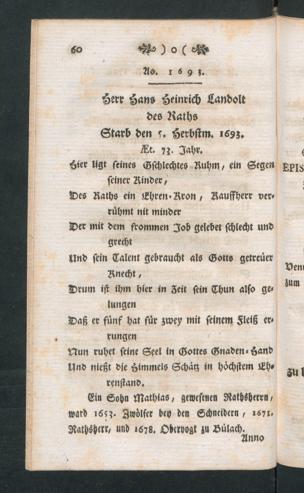 60 ) o (
Ao. 1693.
Herr Hans Heinrich Landolt
des Raths
Starb den 5. Herbstm. 1693.
Æt. 73. Jahr.
Hier ligt seines Gschlechtes Ruhm, ein Segen
seiner Kinder,
Des Raths ein Ehren-Kron, Kauffherr ver-
rühmt nit minder
Der mit dem frommen Job gelebet schlecht und
grecht
Und sein Talent gebraucht als Gotts getreüer
Knecht,
Drum ist ihm hier in Zeit sein Thun also ge-
lungen
Daß er fünf hat für zwey mit seinem Fleiß er-
rungen
Nun ruhet seine Seel in Gottes Gnaden-Hand
Und nießt die Himmels Schätz in höchstem Eh-
renstand.
Ein Sohn Mathias, gewesenen Rathsherrn,
ward 1653. Zwölfer bey den Schneidern, 1671.
Rathsherr, und 1678. Obervogt zu Bülach.
Anno
EPIS
zum